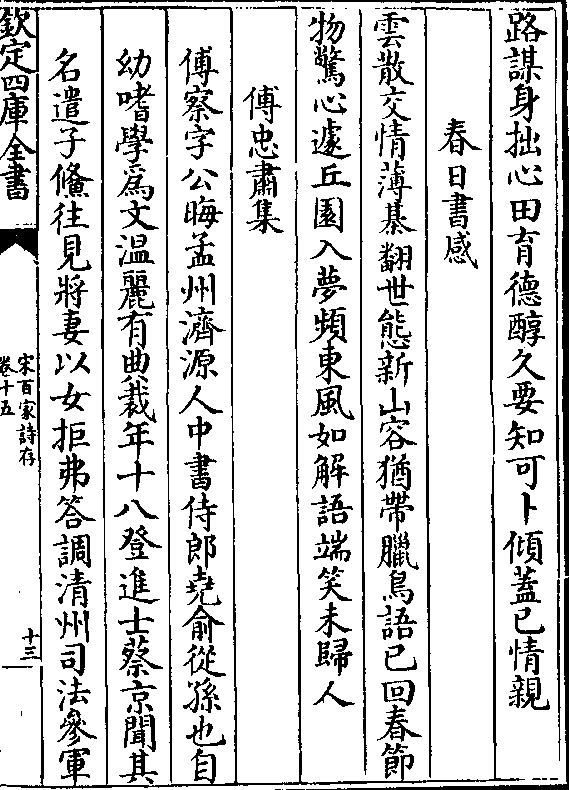 路謀身拙心田育德醇久要知可卜傾蓋已情親
春日書感
雲散交情薄棊翻世態新山容猶帶臘鳥語已回春節
物驚心遽丘園入夢頻東風如解語端笑未歸人
傅忠肅集
傅察字公晦孟州濟源人中書侍郎堯俞從孫也自
幼嗜學爲文温麗有典裁年十八登進士蔡京聞其
名遣子鯈往見將妻以女拒弗答調清州司法參軍
欽定四庫全書
宋百家詩存
卷十五
十三